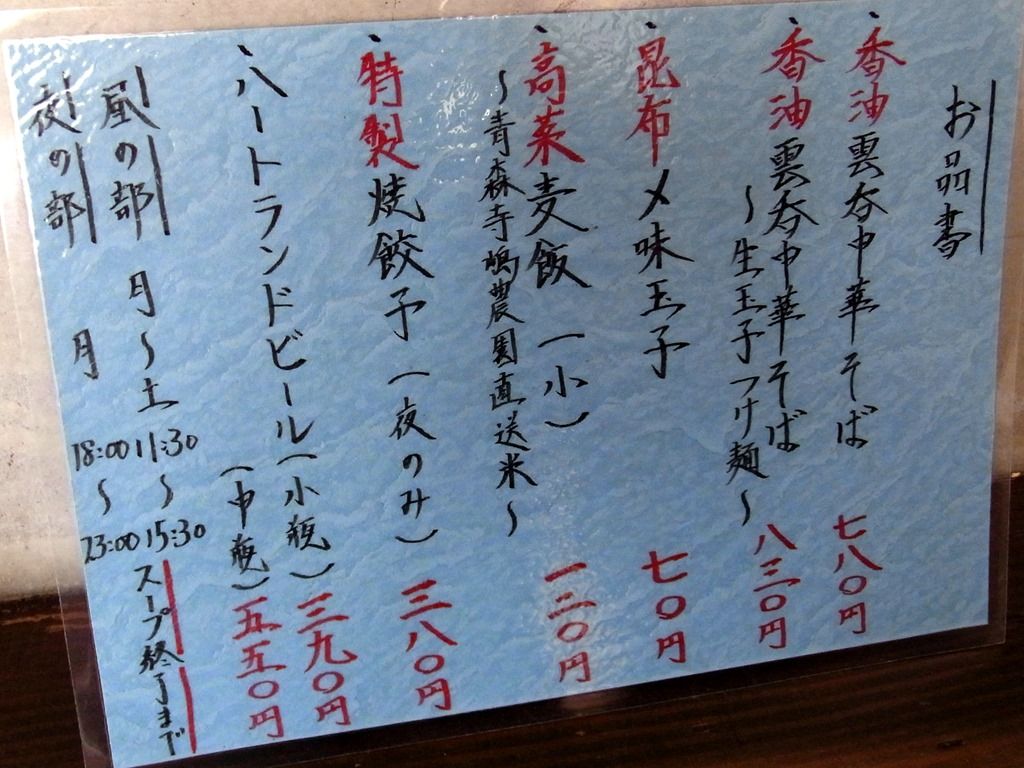 お品書
、香油雲呑中華そば 七八〇円
、香油雲呑中華そば
〜生玉子つけ麺〜 八三〇円
、昆布〆味玉子 七〇円
、高菜麦飯(小) 一二〇円
〜青森寺嶋農園直送米〜
、特製焼餃子(夜のみ) 三八〇円
、ハートランドビール(小瓶) 三九〇円
(中瓶) 五五〇円
昼の部 月〜土 11:30〜15:30 スープ終了まで
夜の部 月 18:00〜23:00